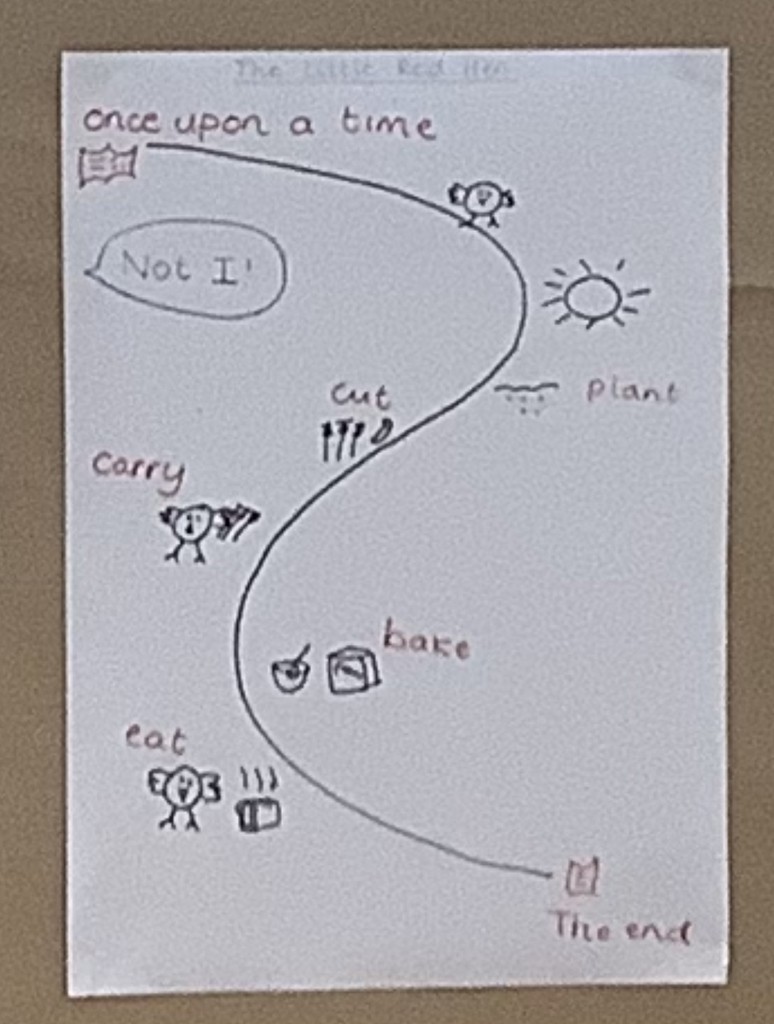 The Little Red Hen
once upon a time
Not I'
cut
plant
carry
bake
eat
The end